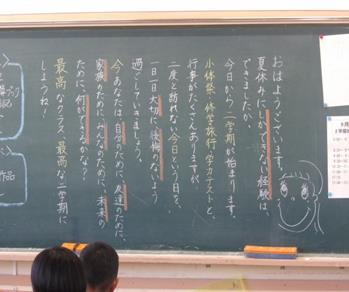 おはようございます。
夏休みにしかできない経験は、
できましたか。
今日から二学期が始まります。
小体祭、修学旅行、学力テストと、
行事がたくさんありますが
二度と訪れない今日という日を、
一日一日大切に、後悔のないよう
過ごしていきましょう。
今あなたは、自分のために、友達のために、
家族のために、みんなのために、未来の
ために、何ができるかな？
最高なクラス、最高な二学期に
しようね！
作品